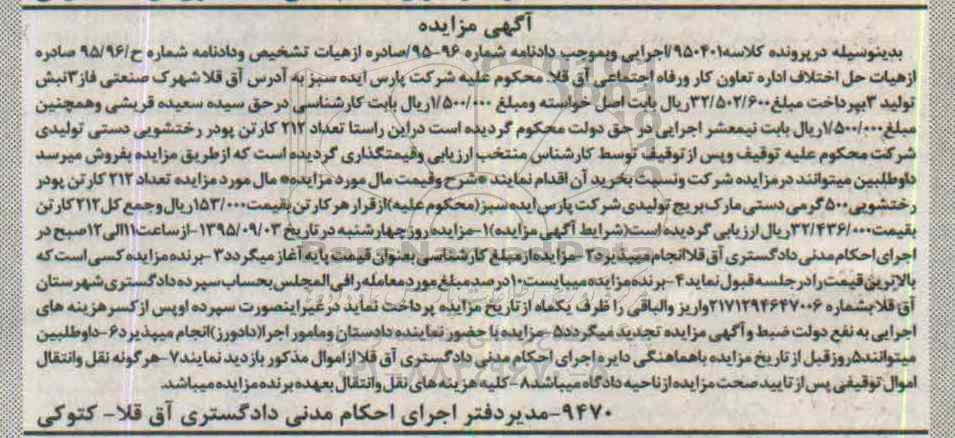 آگهی مزایده
بدینوسیله درپرونده کلاسه۹۵۰۴۰۱/اجرایی وبموجب دادنامه شماره ۹۶-۹۵/صادره ازهیات تشخیص ودادنامه شماره ح/۹۵/۹۶ صادره
ازهیات حل اختلاف اداره تعاون کار ورفاه اجتماعی آق قلا. محکوم علیه شرکت پارس ایده سبز به آدرس آق قلا شهرک صنعتی فاز۳نبش
تولید ۳بپرداخت مبلغ۳۲/۵۰۲/۶۰۰ریال بابت اصل خواسته ومبلغ ۱/۵۰۰/۰۰۰ریال بابت کارشناسی درحق سیده سعیده قریشی وهمچنین
مبلغ۱/۵۰۰/۰۰۰ریال بابت نیمعشر اجرایی در حق دولت محکوم گردیده است دراین راستا تعداد ۲۱۲ کارتن پودر رختشویی دستی تولیدی
شرکت محکوم علیه توقیف وپس ازتوقیف توسط کارشناس منتخب ارزیابی وقیمتگذاری گردیده است که ازطریق مزایده بفروش میرسد
داوطلبین میتوانند درمزایده شرکت ونسبت بخرید آن اقدام نمایند *شرح وقیمت مال مورد مزایده* مال مورد مزایده تعداد ۲۱۲ کارتن پودر
رختشویی ۵۰۰گرمی دستی مارک بریج تولیدی شرکت پارس ایده سبز(محکوم علیه)ازقرار هرکارتن بقیمت۱۵۳/۰۰۰ریال وجمع کل۲۱۲کارتن
بقیمت۳۲/۴۳۶/۰۰۰ریال ارزیابی گردیده است(شرایط آگهی مزایده)۱-مزایده روزچهارشنبه درتاریخ ۱۳۹۵/۰۹/۰۳-ازساعت۱۱الی۱۲صبح در
اجرای احکام مدنی دادگستری آق قلاانجام میپذیرد۲-مزایده ازمبلغ کارشناسی بعنوان قیمت پایه آغاز میگردد۳-برنده مزایده کسی است که
بالاترین قیمت رادرجلسه قبول نماید۴-برنده مزایده میبایست۱۰درصد مبلغ مورد معامله رافی المجلس بحساب سپرده دادگستری شهرستان
آق قلا بشماره ۲۱۷۱۲۹۴۶۴۷۰۰۶واریز والباقی را ظرف یکماه ازتاریخ مزایده پرداخت نماید درغیراینصورت سپرده اوپس ازکسرهزینه های
اجرایی به نفع دولت ضبط و آگهی مزایده تجدید میگردد۵-مزایده با حضور نماینده دادستان ومامور اجرا(دادورز)انجام میپذیرد۶-داوطلبین
میتوانند۵روزقبل از تاریخ مزایده باهماهنگی دایره اجرای احکام مدنی دادگستری آق قلاازاموال مذکور بازدید نمایند۷-هرگونه نقل وانتقال
اموال توقیفی پس ازتایید صحت مزایده ازناحیه دادگاه میباشد۸-کلیه هزینه های نقل وانتقال بعهده برنده مزایده میباشد.
۹۴۷۰-مدیردفتر اجرای احکام مدنی دادگستری آق قلا- کتوکی